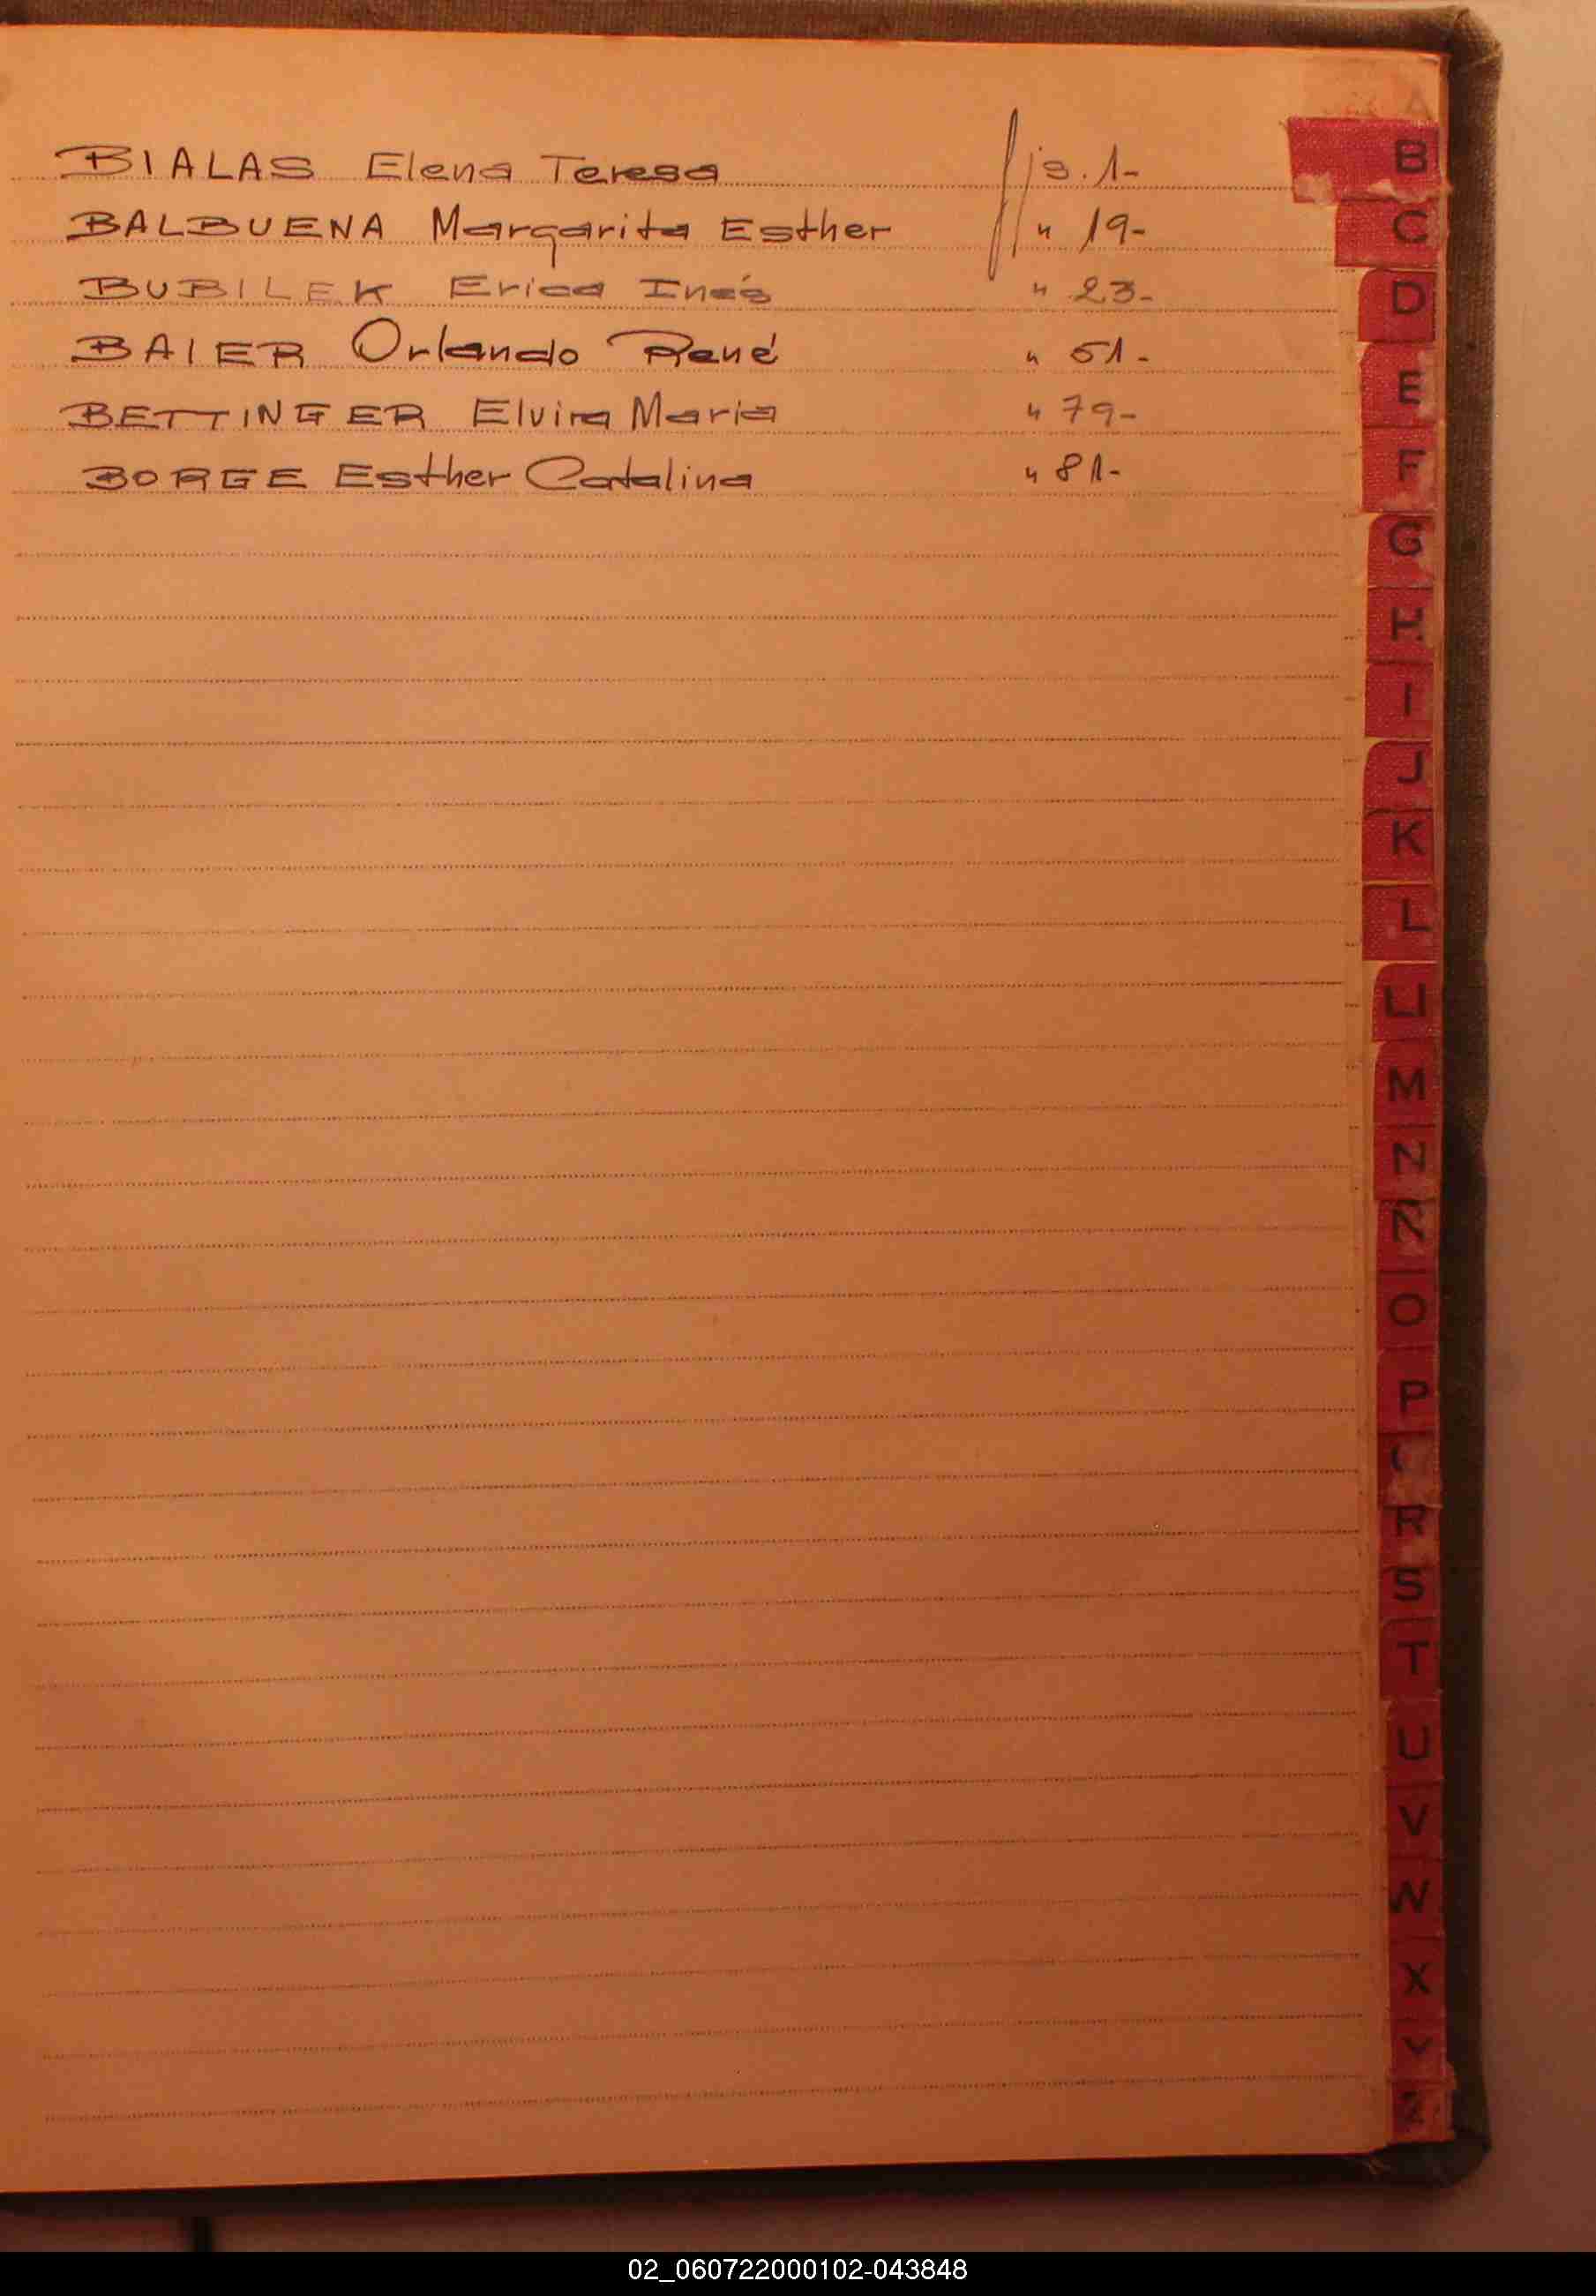 BIALAS Elena Teresa fjs. 1-
BALBUENA Margarita Esther " 19-
BUBILEK Erica Inés " 23-
BAIER Orlando René " 51-
BETTINGER Elvira Maria " 79-
BORGE Esther Catalina " 81-
A
B
C
D
E
F
G
H
I
J
K
L
LL
M
N
Ñ
O
P
R
S
T
U
V
W
X
Y
Z
02_060722000102-043848